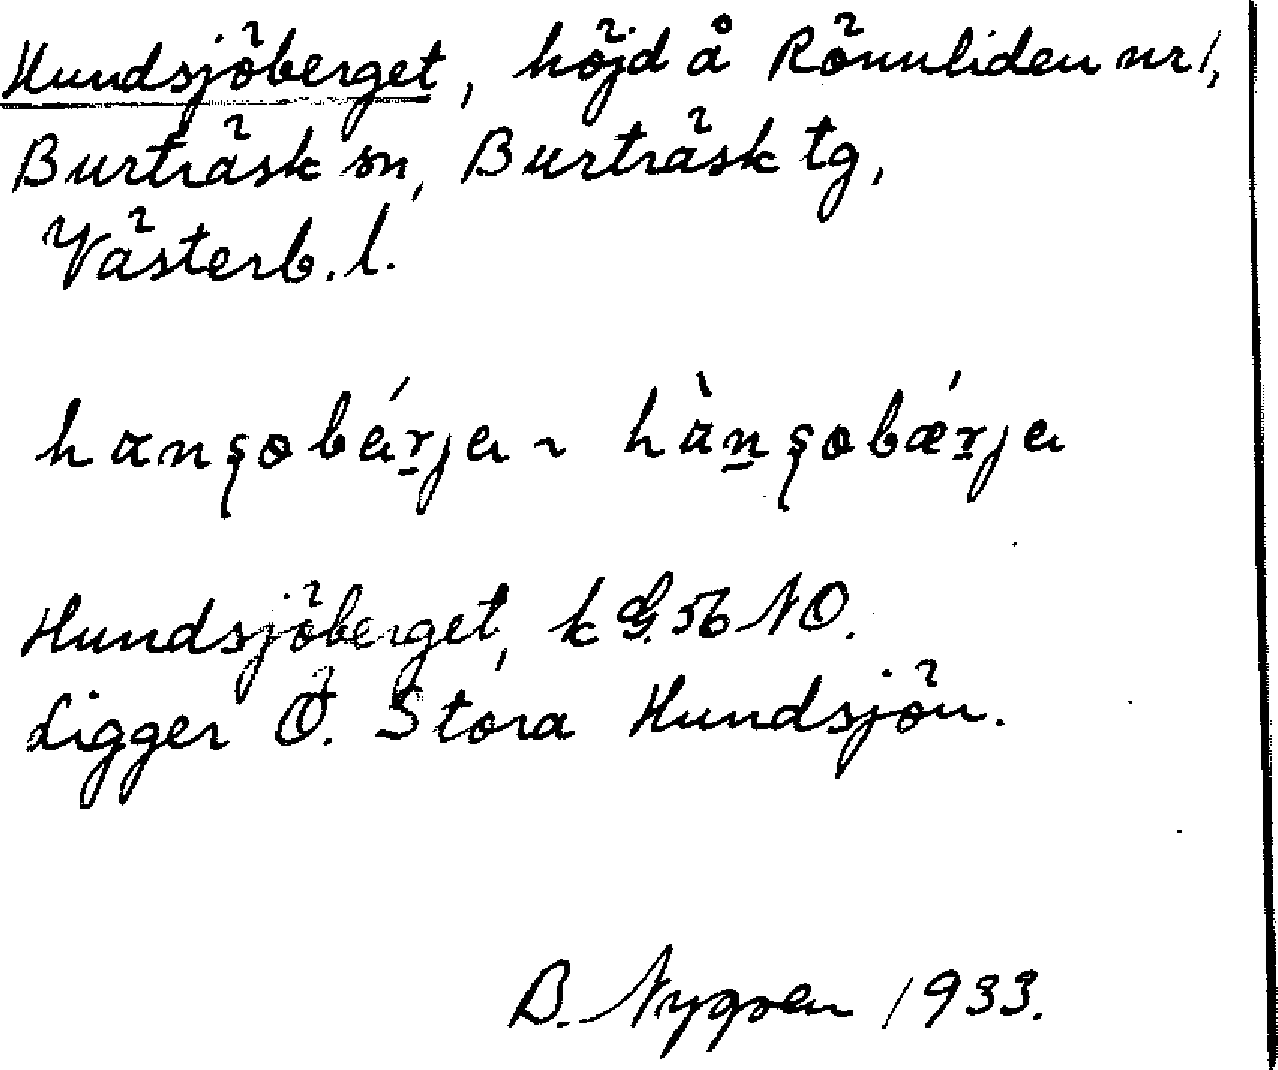 Hundsjöberget, höjd å Rönnliden nr 1,
Burträsk sn, Burträsk tg,
Västerb. l.
hanʂobærja ~ hànʂobærja
Hundsjöberget, k G. 56 NO.
Ligger Ö. Stora Hundsjön.
B. Nygren 1933.